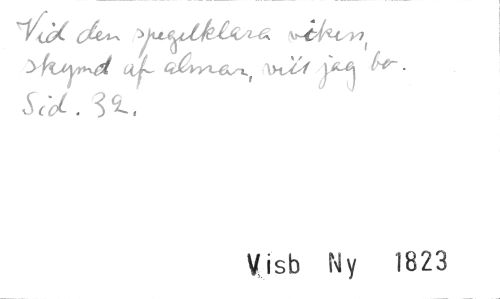 Vid den spegelklara viken,
skymd af almar, vill jag bo.
Sid. 32.
Visb Ny 1823